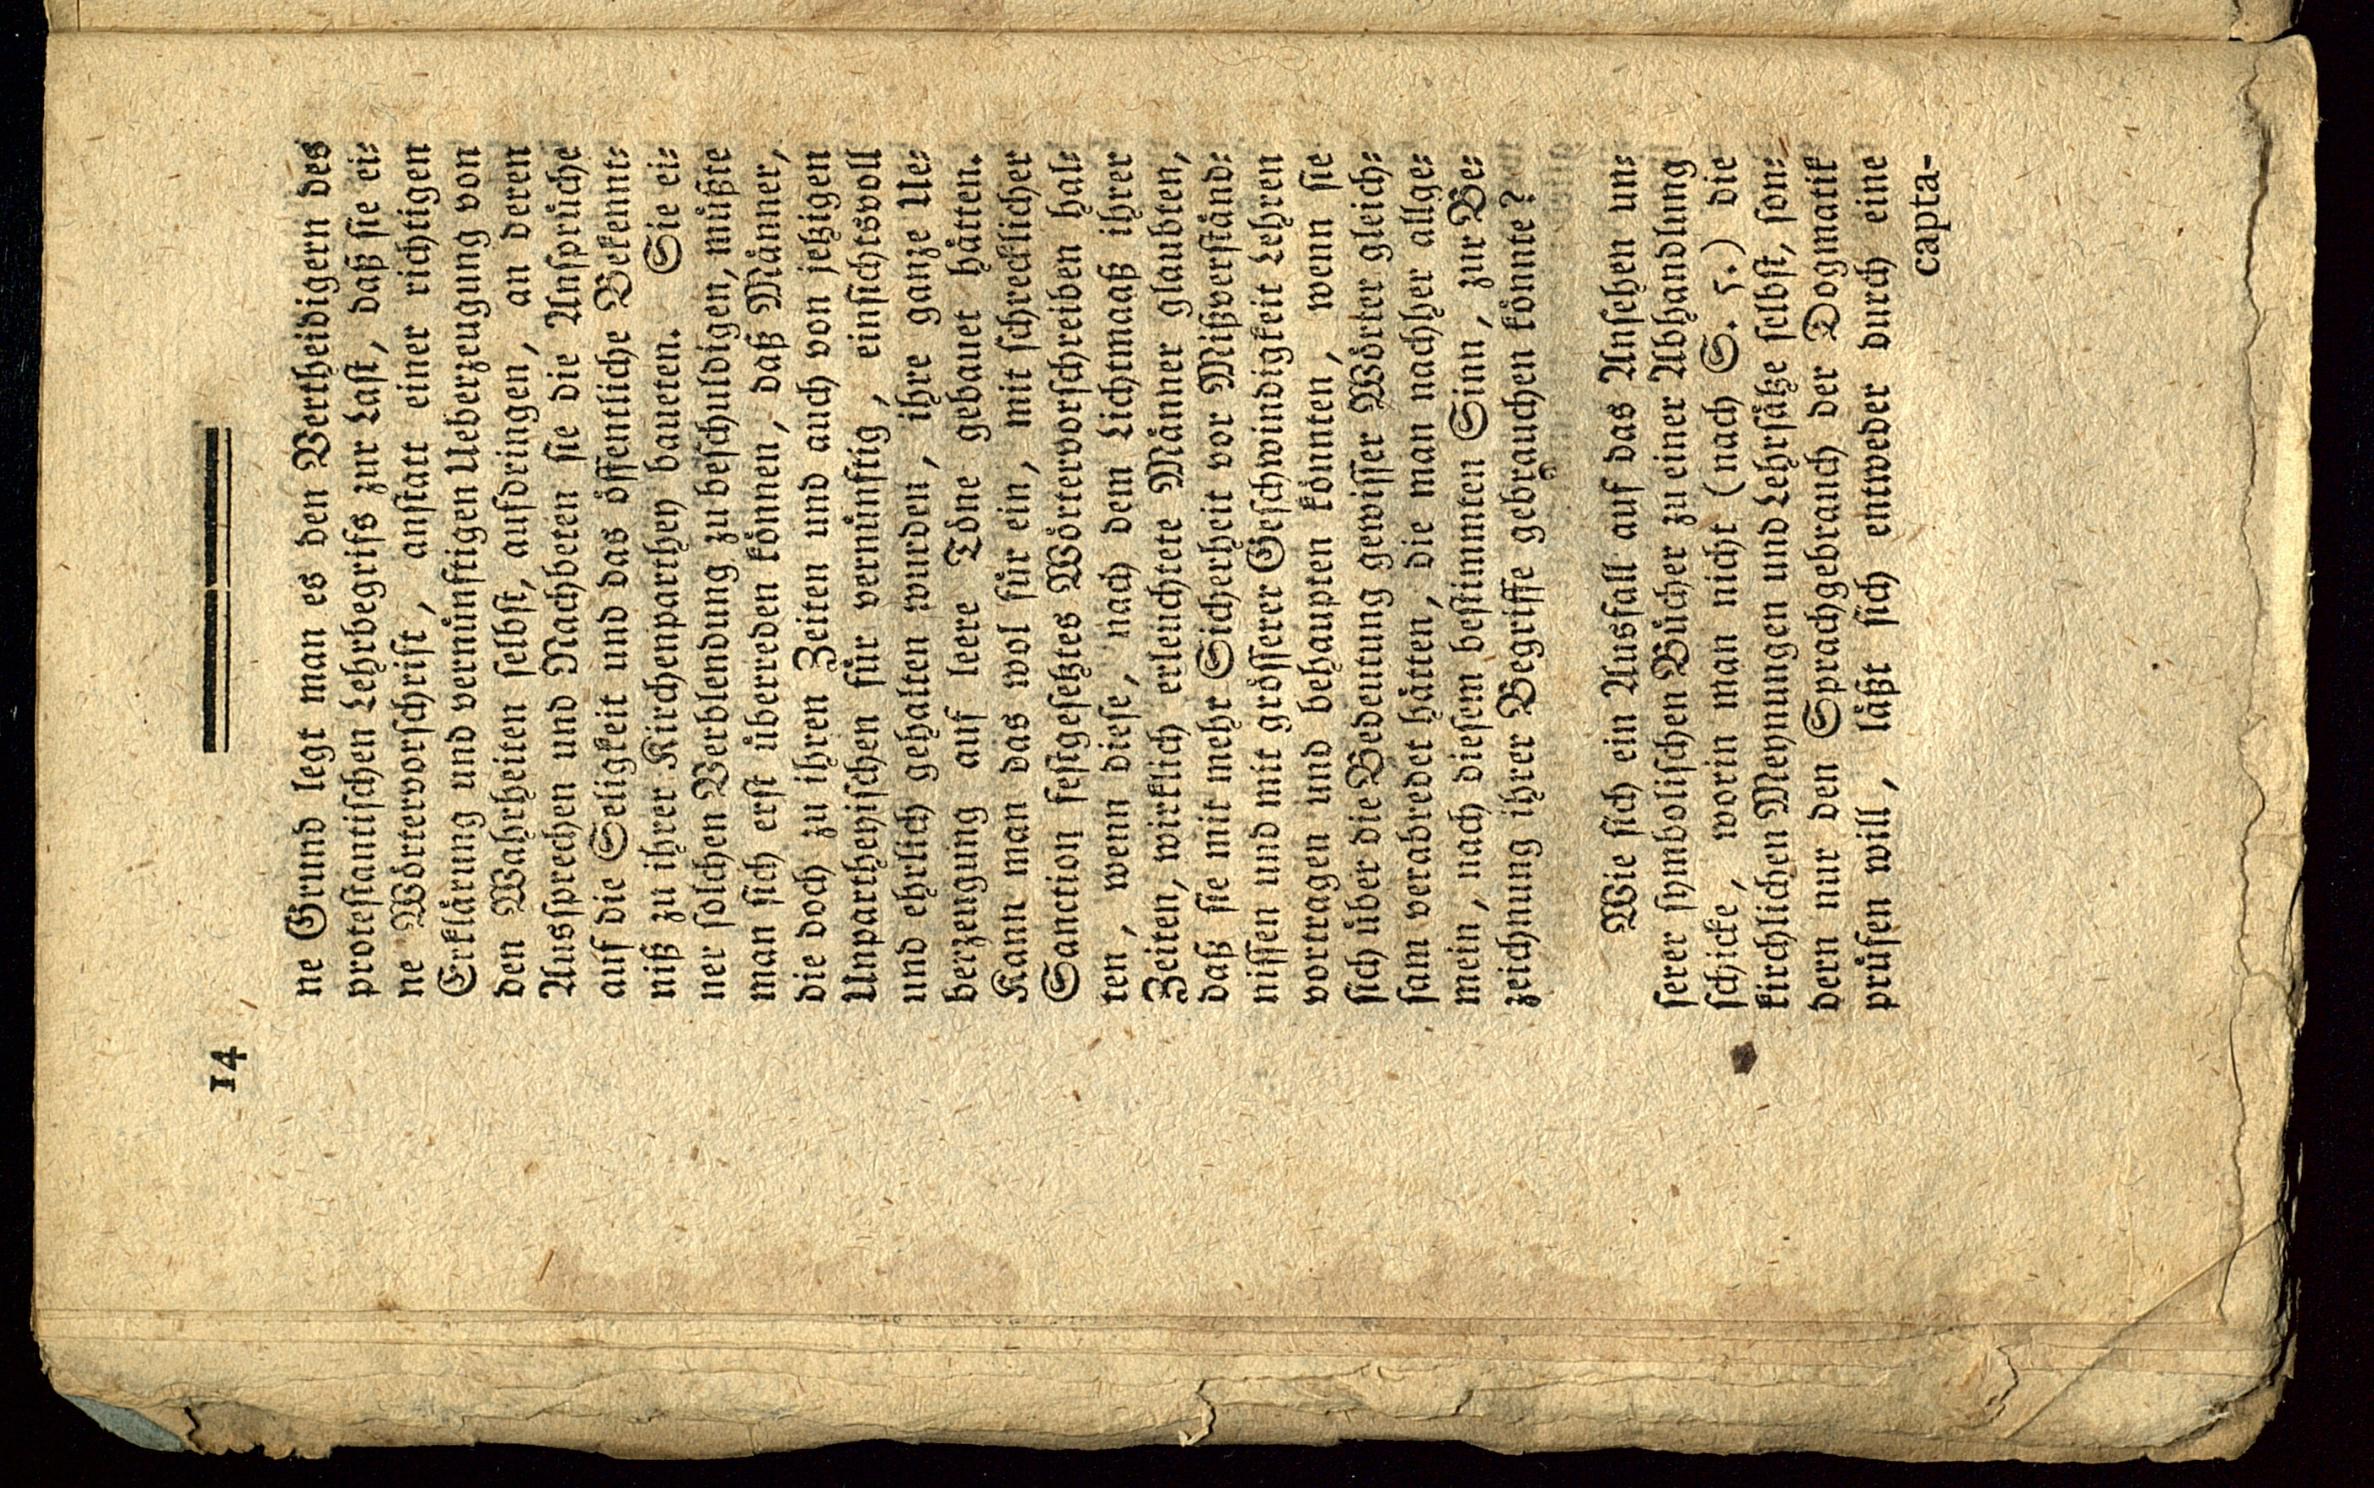 14
ne Grund legt man es den Vertheidigern des
protestantischen Lehrbegrifs zur Last, daß sie ei-
ne Wörtervorschrift, anstatt einer richtigen
Erklärung und vernünftigen Ueberzeugung von
den Wahrheiten selbst, aufdringen, an deren
Aussprechen und Nachbeten sie die Ansprüche
auf die Seligkeit und das öffentliche Bekennt-
niß zu ihrer Kirchenparthey baueten. Sie ei-
ner solchen Verblendung zu beschuldigen, müßte
man sich erst überreden können, daß Männer,
die doch zu ihren Zeiten und auch von jetzigen
Unpartheyischen für vernünftig, einsichtsvoll
und ehrlich gehalten wurden, ihre ganze Ue-
berzeugung auf leere Töne gebauet hätten.
Kann man das wol für ein, mit schrecklicher
Sanction festgesetztes Wörtervorschreiben hal-
ten, wenn diese, nach dem Lichtmaaß ihrer
Zeiten, wirklich erleuchtete Männer glaubten,
daß sie mit mehr Sicherheit vor Mißverständ-
nissen und mit grösserer Geschwindigkeit Lehren
vortragen und behaupten könnten, wenn sie
sich über die Bedeutung gewisser Wörter gleich-
sam verabredet hätten, die man nachher allge-
mein, nach diesem bestimmten Sinn, zur Be-
zeichnung ihrer Begriffe gebrauchen könnte?
Wie sich ein Ausfall auf das Ansehen un-
serer symbolischen Bücher zu einer Abhandlung
schicke, worin man nicht (nach S. 5.) die
kirchlichen Meynungen und Lehrsätze selbst, son-
dern nur den Sprachgebrauch der Dogmatik
prüfen will, läßt sich entweder durch eine
capta-